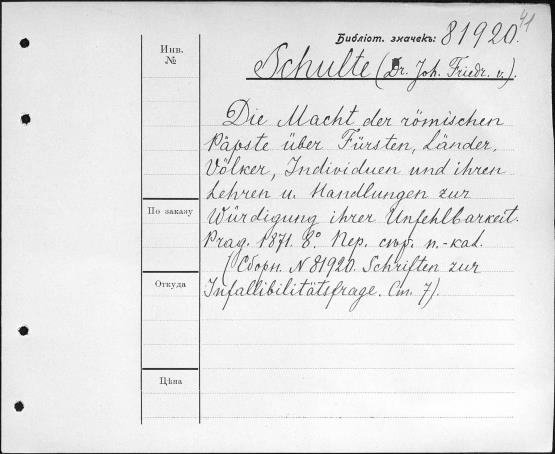 41
Библіот. значекъ: 81920.
Инв.
№
Schulte (Dr. Joh. Friedr. v.).
Die Macht der römischen
Päpste über Fürsten, Länder,
Völker, Individuen und ihren
Lehren u. Handlungen zur
По заказу
Würdigung ihrer Unfehlbarkeit.
Prag. 1871. 8° Пер. сѣр. п.-кал.
(Сборн. N 81920. Schriften zur
Откуда
Infallibilitätsfrage. Ст. 7).
Цѣна